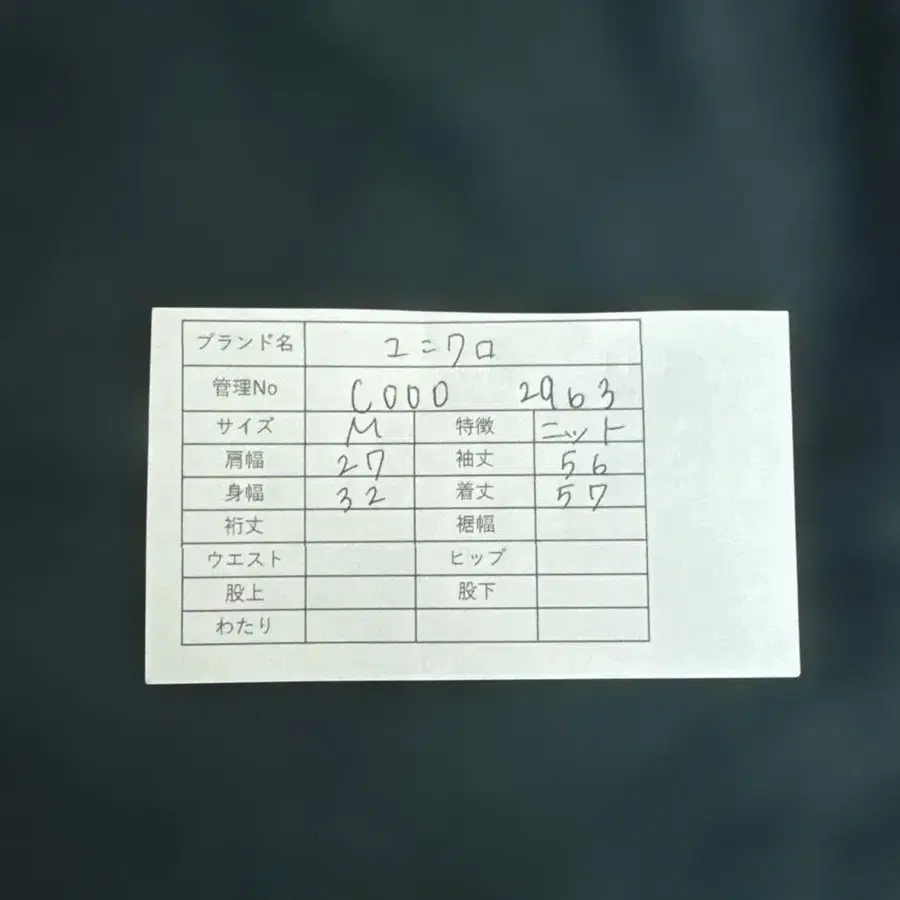 ブランド名 ユニクロ
管理No C000 2963
サイズ M 特徴 ニット
肩幅 27 袖丈 56
身幅 32 着丈 57
裄丈 裾幅
ウエスト ヒップ
股上 股下
わたり